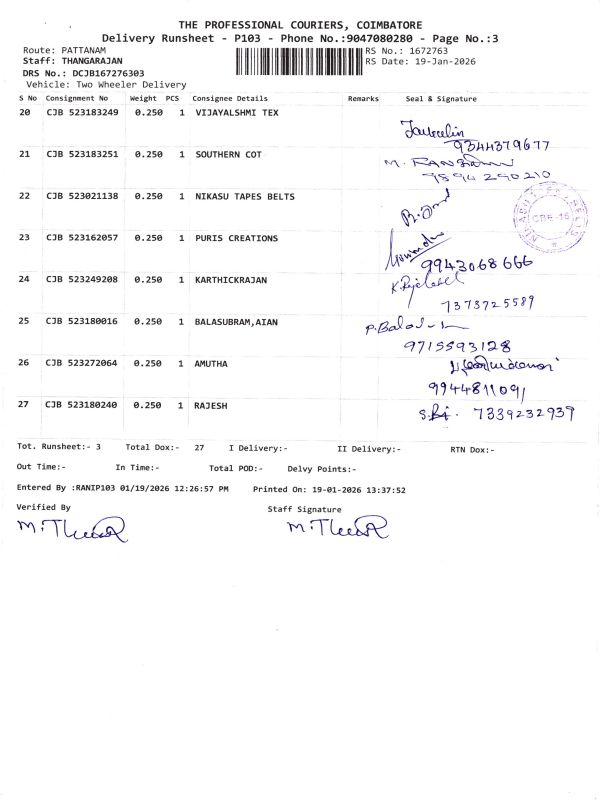 THE PROFESSIONAL COURIERS, COIMBATORE
Delivery Runsheet - P103 - Phone No.:9047080280 - Page No.:3
Route: PATTANAM RS No.: 1672763
Staff: THANGARAJAN RS Date: 19-Jan-2026
DRS No.: DCJB167276303
Vehicle: Two Wheeler Delivery
S No Consignment No Weight PCS Consignee Details Remarks Seal & Signature
20 CJB 523183249 0.250 1 VIJAYALSHMI TEX
9344379677
21 CJB 523183251 0.250 1 SOUTHERN COT M.
9894290210
22 CJB 523021138 0.250 1 NIKASU TAPES BELTS
CBE-16
23 CJB 523162057 0.250 1 PURIS CREATIONS
9943068666
24 CJB 523249208 0.250 1 KARTHICKRAJAN
7373725589
25 CJB 523180016 0.250 1 BALASUBRAM,AIAN
9715593128
26 CJB 523272064 0.250 1 AMUTHA
9944811091
27 CJB 523180240 0.250 1 RAJESH 7339232939
Tot. Runsheet:- 3 Total Dox:- 27 I Delivery:- II Delivery:- RTN Dox:-
Out Time:- In Time:- Total POD:- Delvy Points:-
Entered By :RANIP103 01/19/2026 12:26:57 PM Printed On: 19-01-2026 13:37:52
Verified By Staff Signature